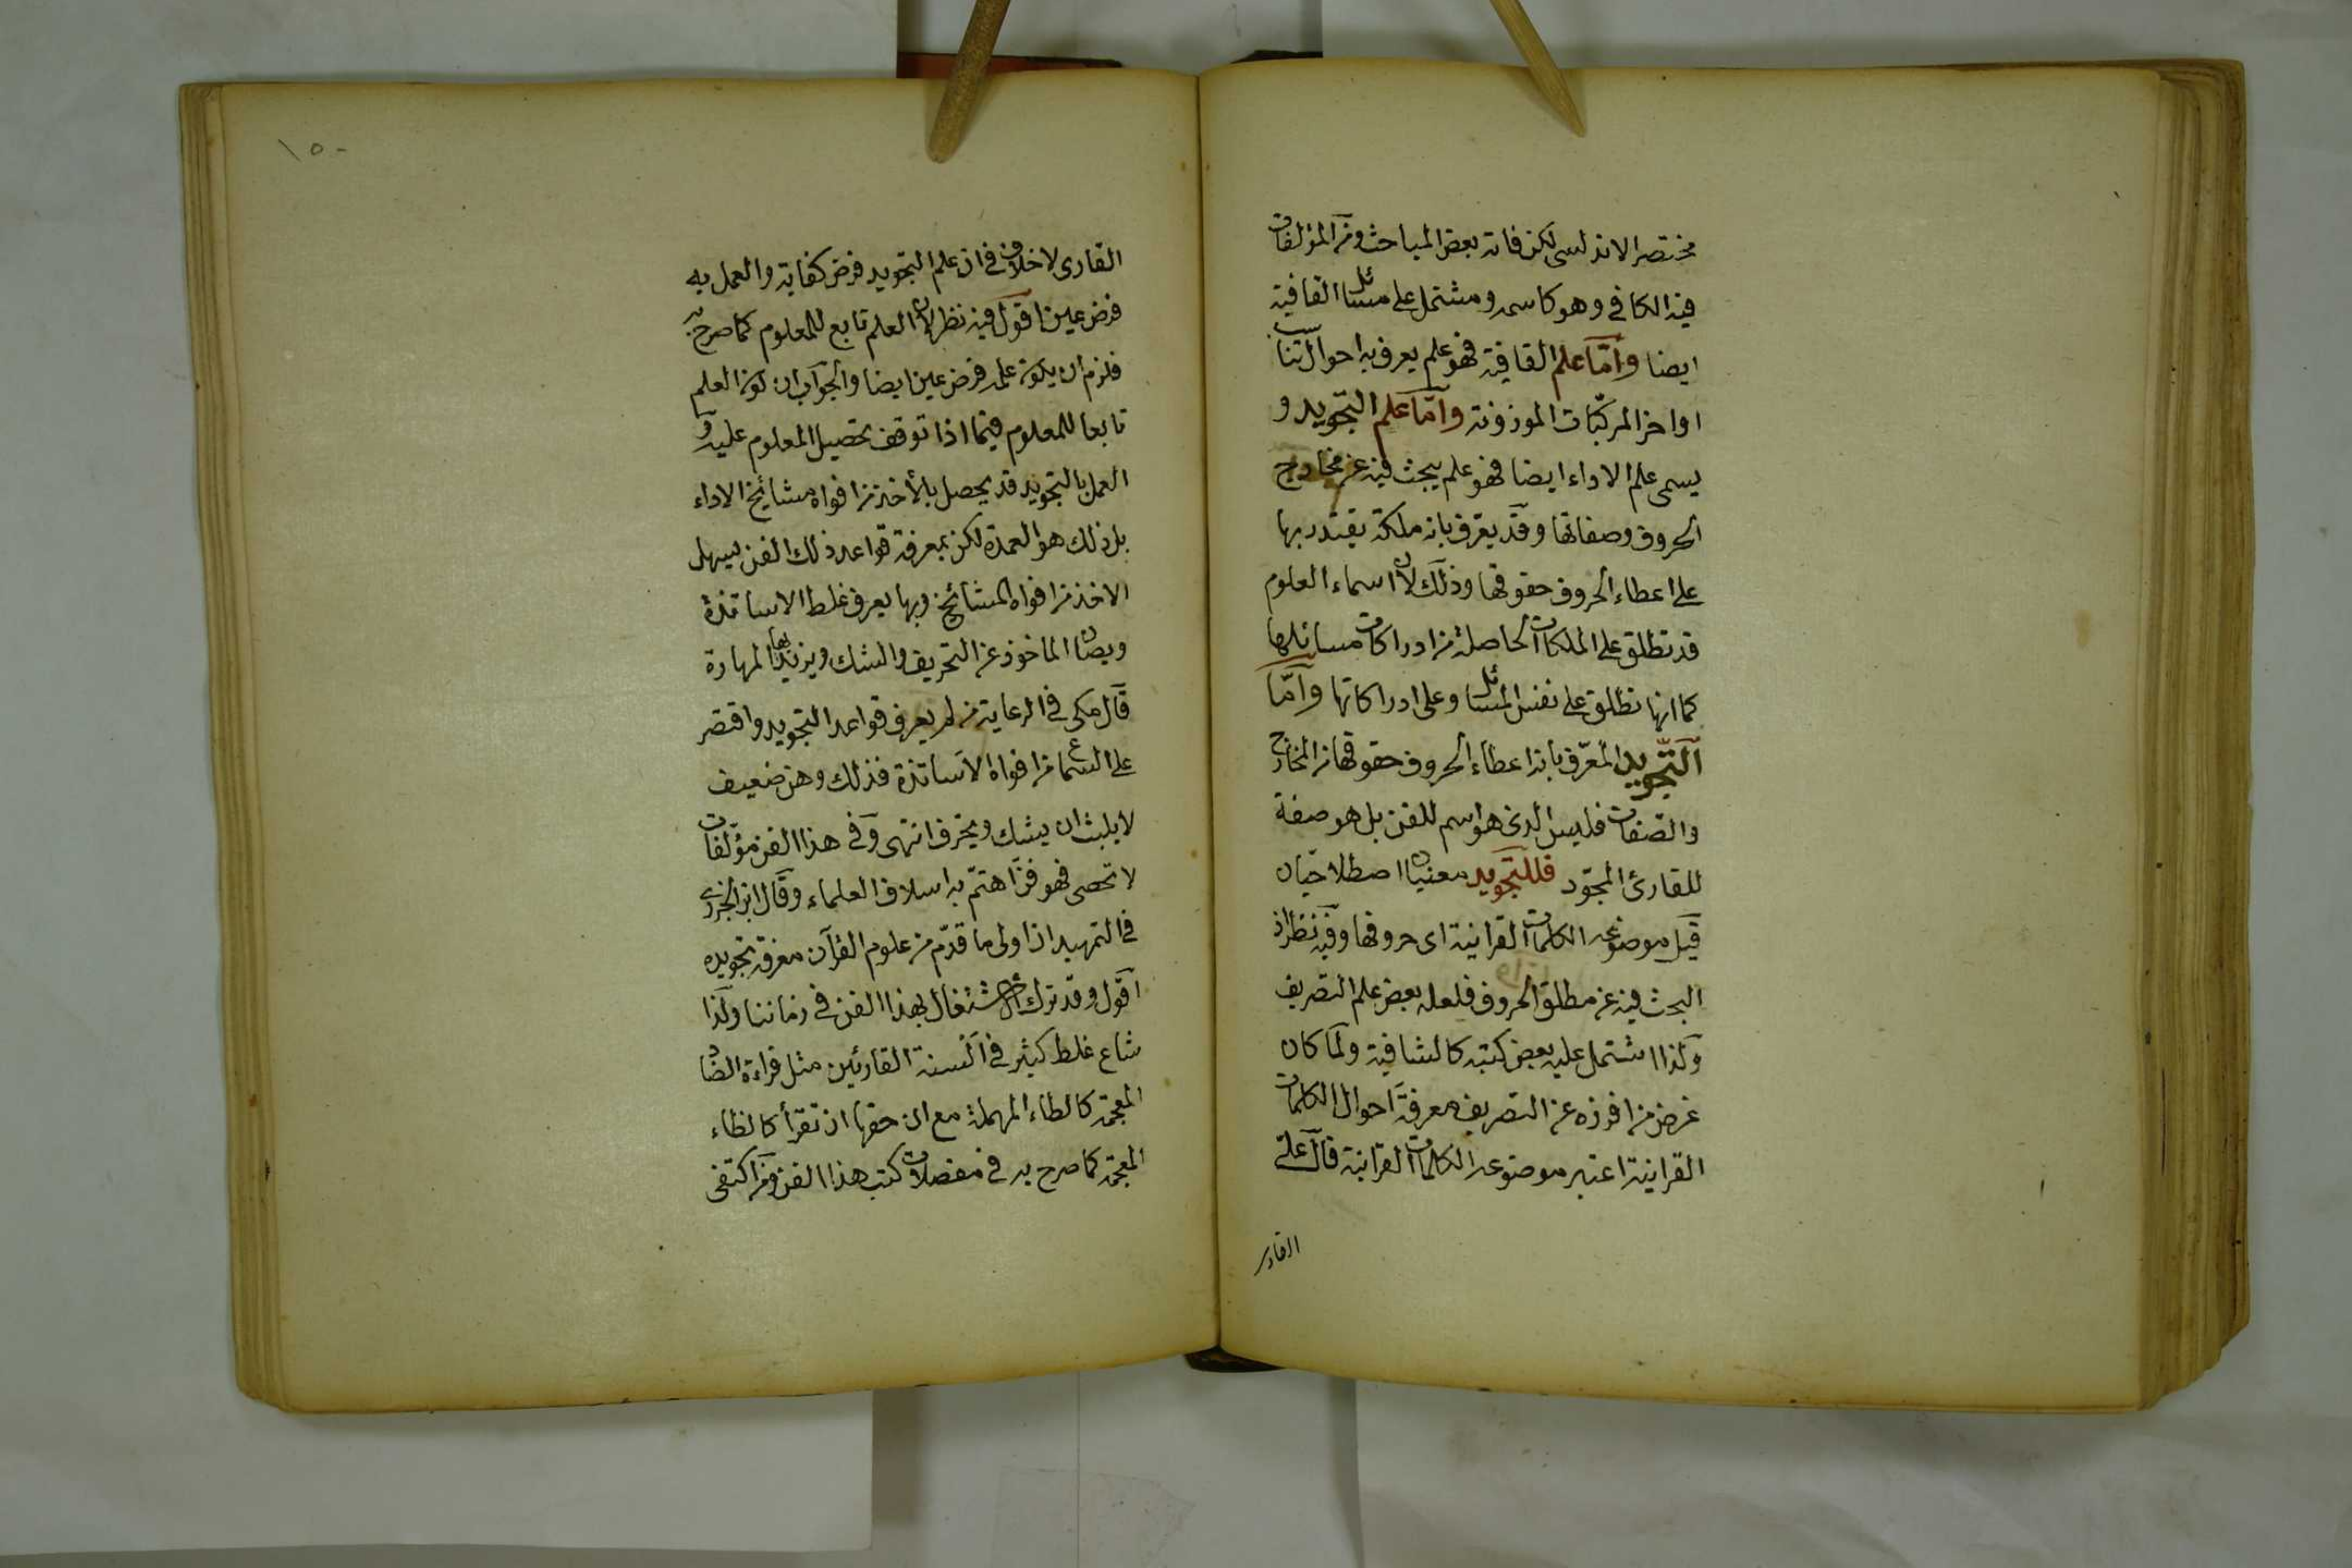 مختصر الاندلسى لكن فاته بعض المباحث ومن المؤلفات
فيه الكافى وهو كاسمه ومشتمل على مسائل القافية
ايضا وامّا علم القافية فهو علم يعرف به احوال تناسب
اواخر المركّبات الموزونة وامّا علم التجويد و
يسمى علم الاداء ايضا فهو علم يبحث فيه عن مخارج
الحروف وصفاتها وقد يعرّف بانه ملكة يقتدر بها
على اعطاء الحروف حقوقها وذلك لان اسماء العلوم
قد تطلق على الملكات الحاصلة من ادراكات مسائلها
كما انها تطلق على نفس المسائل وعلى ادراكاتها وامّا
التّجويد المعرّف بانه اعطاء الحروف حقوقها من المخارج
والصّفات فليس الذى هو اسم للفن بل هو صفة
للقارئ المجوّد فللتجويد معنيان اصطلاحيّان
قيل موضوعه الكلمات القرانية اى حروفها وفيه نظر اذ
البحث فيه عن مطلق الحروف فلعله بعض علم التصريف
وكذا اشتمل عليه بعض كتبه كالشافية ولما كان
غرض من افرزه عن التصريف معرفة احوال الكلمات
القرانية اعتبر موضوعه الكلمات القرانية قال على
القارى
١٥٠
القارى لا خلاف فى ان علم التجويد فرض كفاية والعمل به
فرض عين اقول فيه نظر لان العلم تابع للمعلوم كما صرح به
فلزم ان يكون علمه فرض عين ايضا والجواب ان كون العلم
تابعا للمعلوم فيما اذا توقف تحصيل المعلوم عليه و
العمل بالتجويد قد يحصل بالأخذ من افواه مشائخ الاداء
بل ذلك هو العمدة لكن بمعرفة قواعد ذلك الفن يسهل
الاخذ من افواه المشائخ وبها يعرف غلط الاساتذة
ويصان الماخوذ عن التحريف والشك ويزيد بها المهارة
قال مكى فى الرعاية من لم يعرف قواعد التجويد واقتصر
على السماع من افواه الاساتذة فذلك وهن ضعيف
لا يلبث ان يشك ويحرف انتهى وفى هذا الفن مؤلّفات
لا تحصى فهو فن اهتمّ به اسلاف العلماء وقال ابن الجزرى
فى التمهيد ان اولى ما قدّم من علوم القرآن معرفة تجويده
اقول وقد ترك الاشتغال بهذا الفن فى زماننا ولذا
شاع غلط كثير فى السنة القارئين مثل قراءة الضاد
المعجمة كالطاء المهملة مع ان حقها ان تقرأ كالظاء
المعجمة كما صرح به فى مفصلات كتب هذا الفن ومن اكتفى